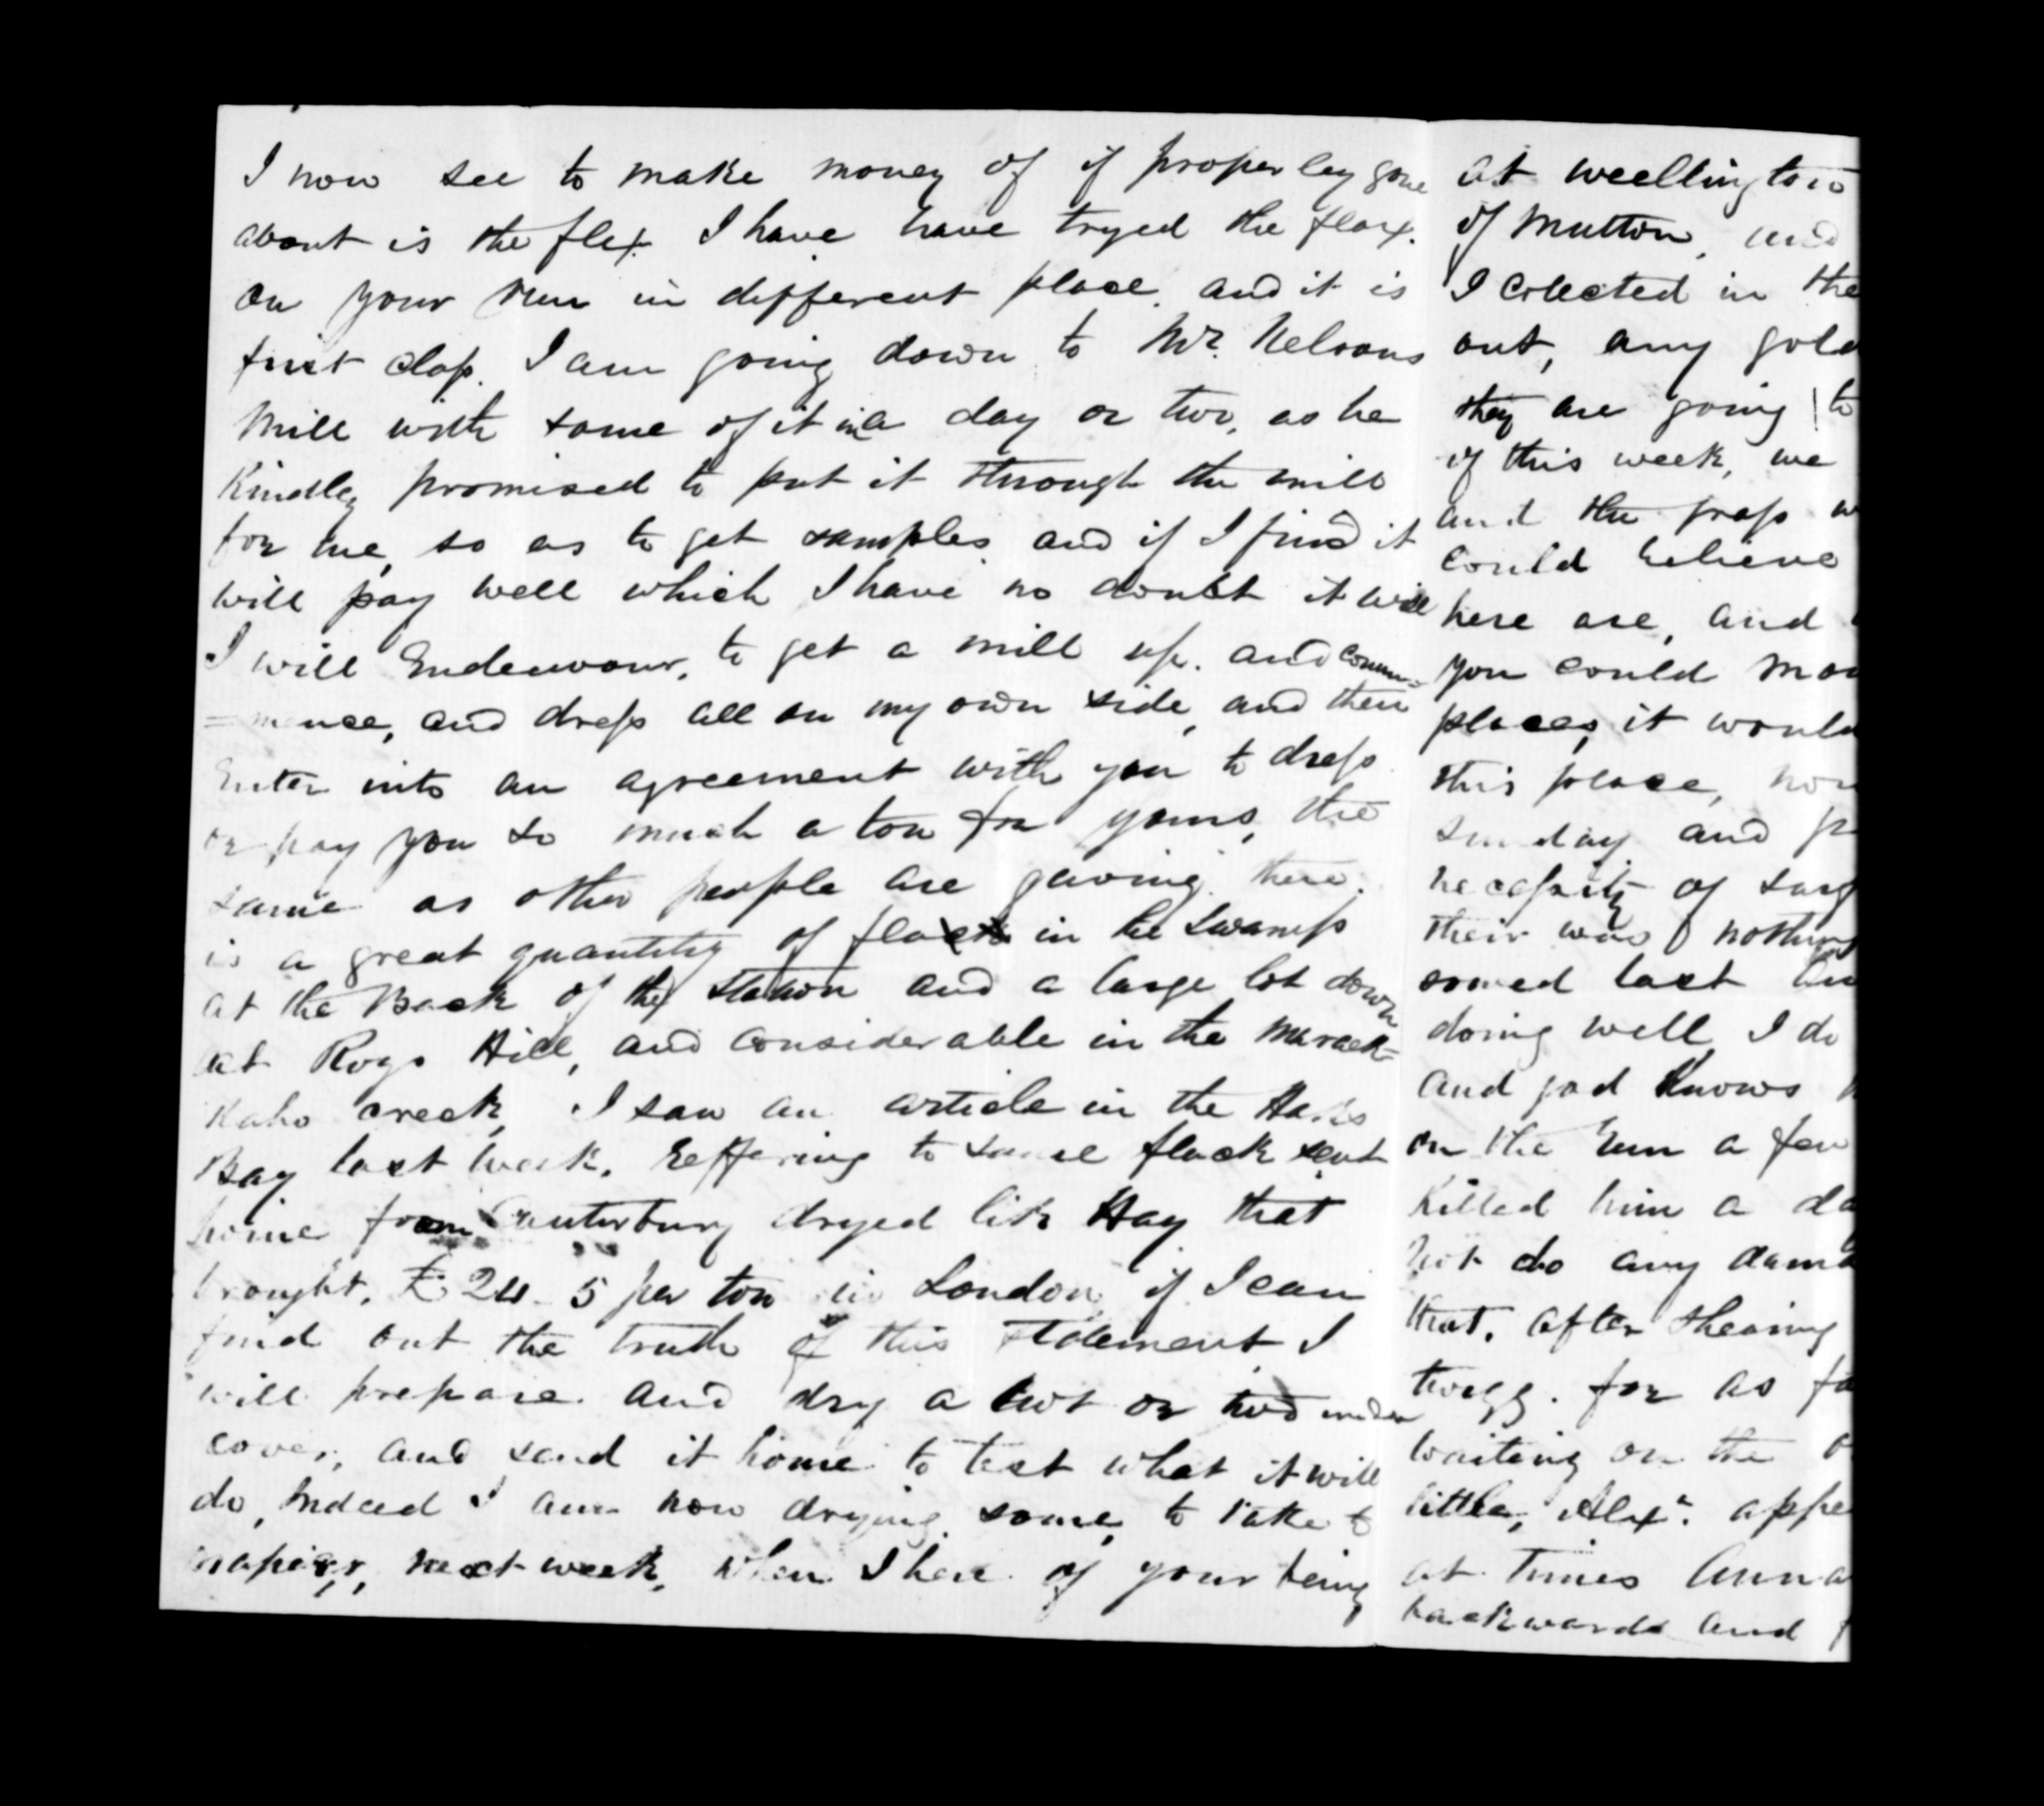 I now see to make money of if properley gone
about is the flex. I have have tryed the flax.
on your run in different place. and it is
first class. I am going down to Mr. Nelsons
Mill with some of it in a day or two, as he
Kindley promised to put it through the mill
for me, so as to get samples and if I find it
will pay well which I have no doubt it will
I will Endeavour, to get a mill up. and comm-
=mence, and dress all on my own side, and then
Enter into an agreement with you to dress
or pay you so much a ton for yours, the
same as other people are geiving. there.
is a great quantity of flack in the Swamp
at the Back of the station and a large lot down
at Roys Hill, and considerable in the Marack-
Kaho creek, I saw an article in the Haks
Bay last week, Reffering to some flack sent
home from Canterbury dryed like Hay that
brought, £24-5 per ton in London, if I can
find out the truth of this statement I
will prepare and dry a Cwt or two under
cover, and send it home to test what it will
do, Indeed I am now drying some, to take to
napier, next week, when I here of your being
at weellington
of Mutton, and
I colected in the
out, any gold
they are going to
if this week, we
and the grass w
could believe
here are, and
you could mo
places, it would
this place, no
Sunday and p
necessity of
their was nothing
somed last
doing well I do
and god Knows
on the Run a few
Killed him a da
not do any dama
that. after shearing
twigg. for as fa
waiting on the
little, Alexr. appe
at times Anna
backwards and f